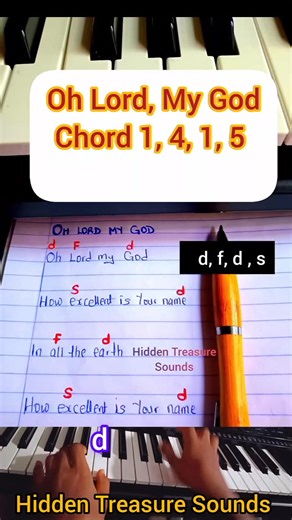 Oh Lord, My God
Chord 1, 4, 1, 5
OH LORD MY GOD
d F d
Oh Lord my God
d, f, d , s
S d
How excellent is Your name
F d
In all the earth
Hidden Treasure
Sounds
S d
How excellent is Your name
d
Hidden Treasure Sounds